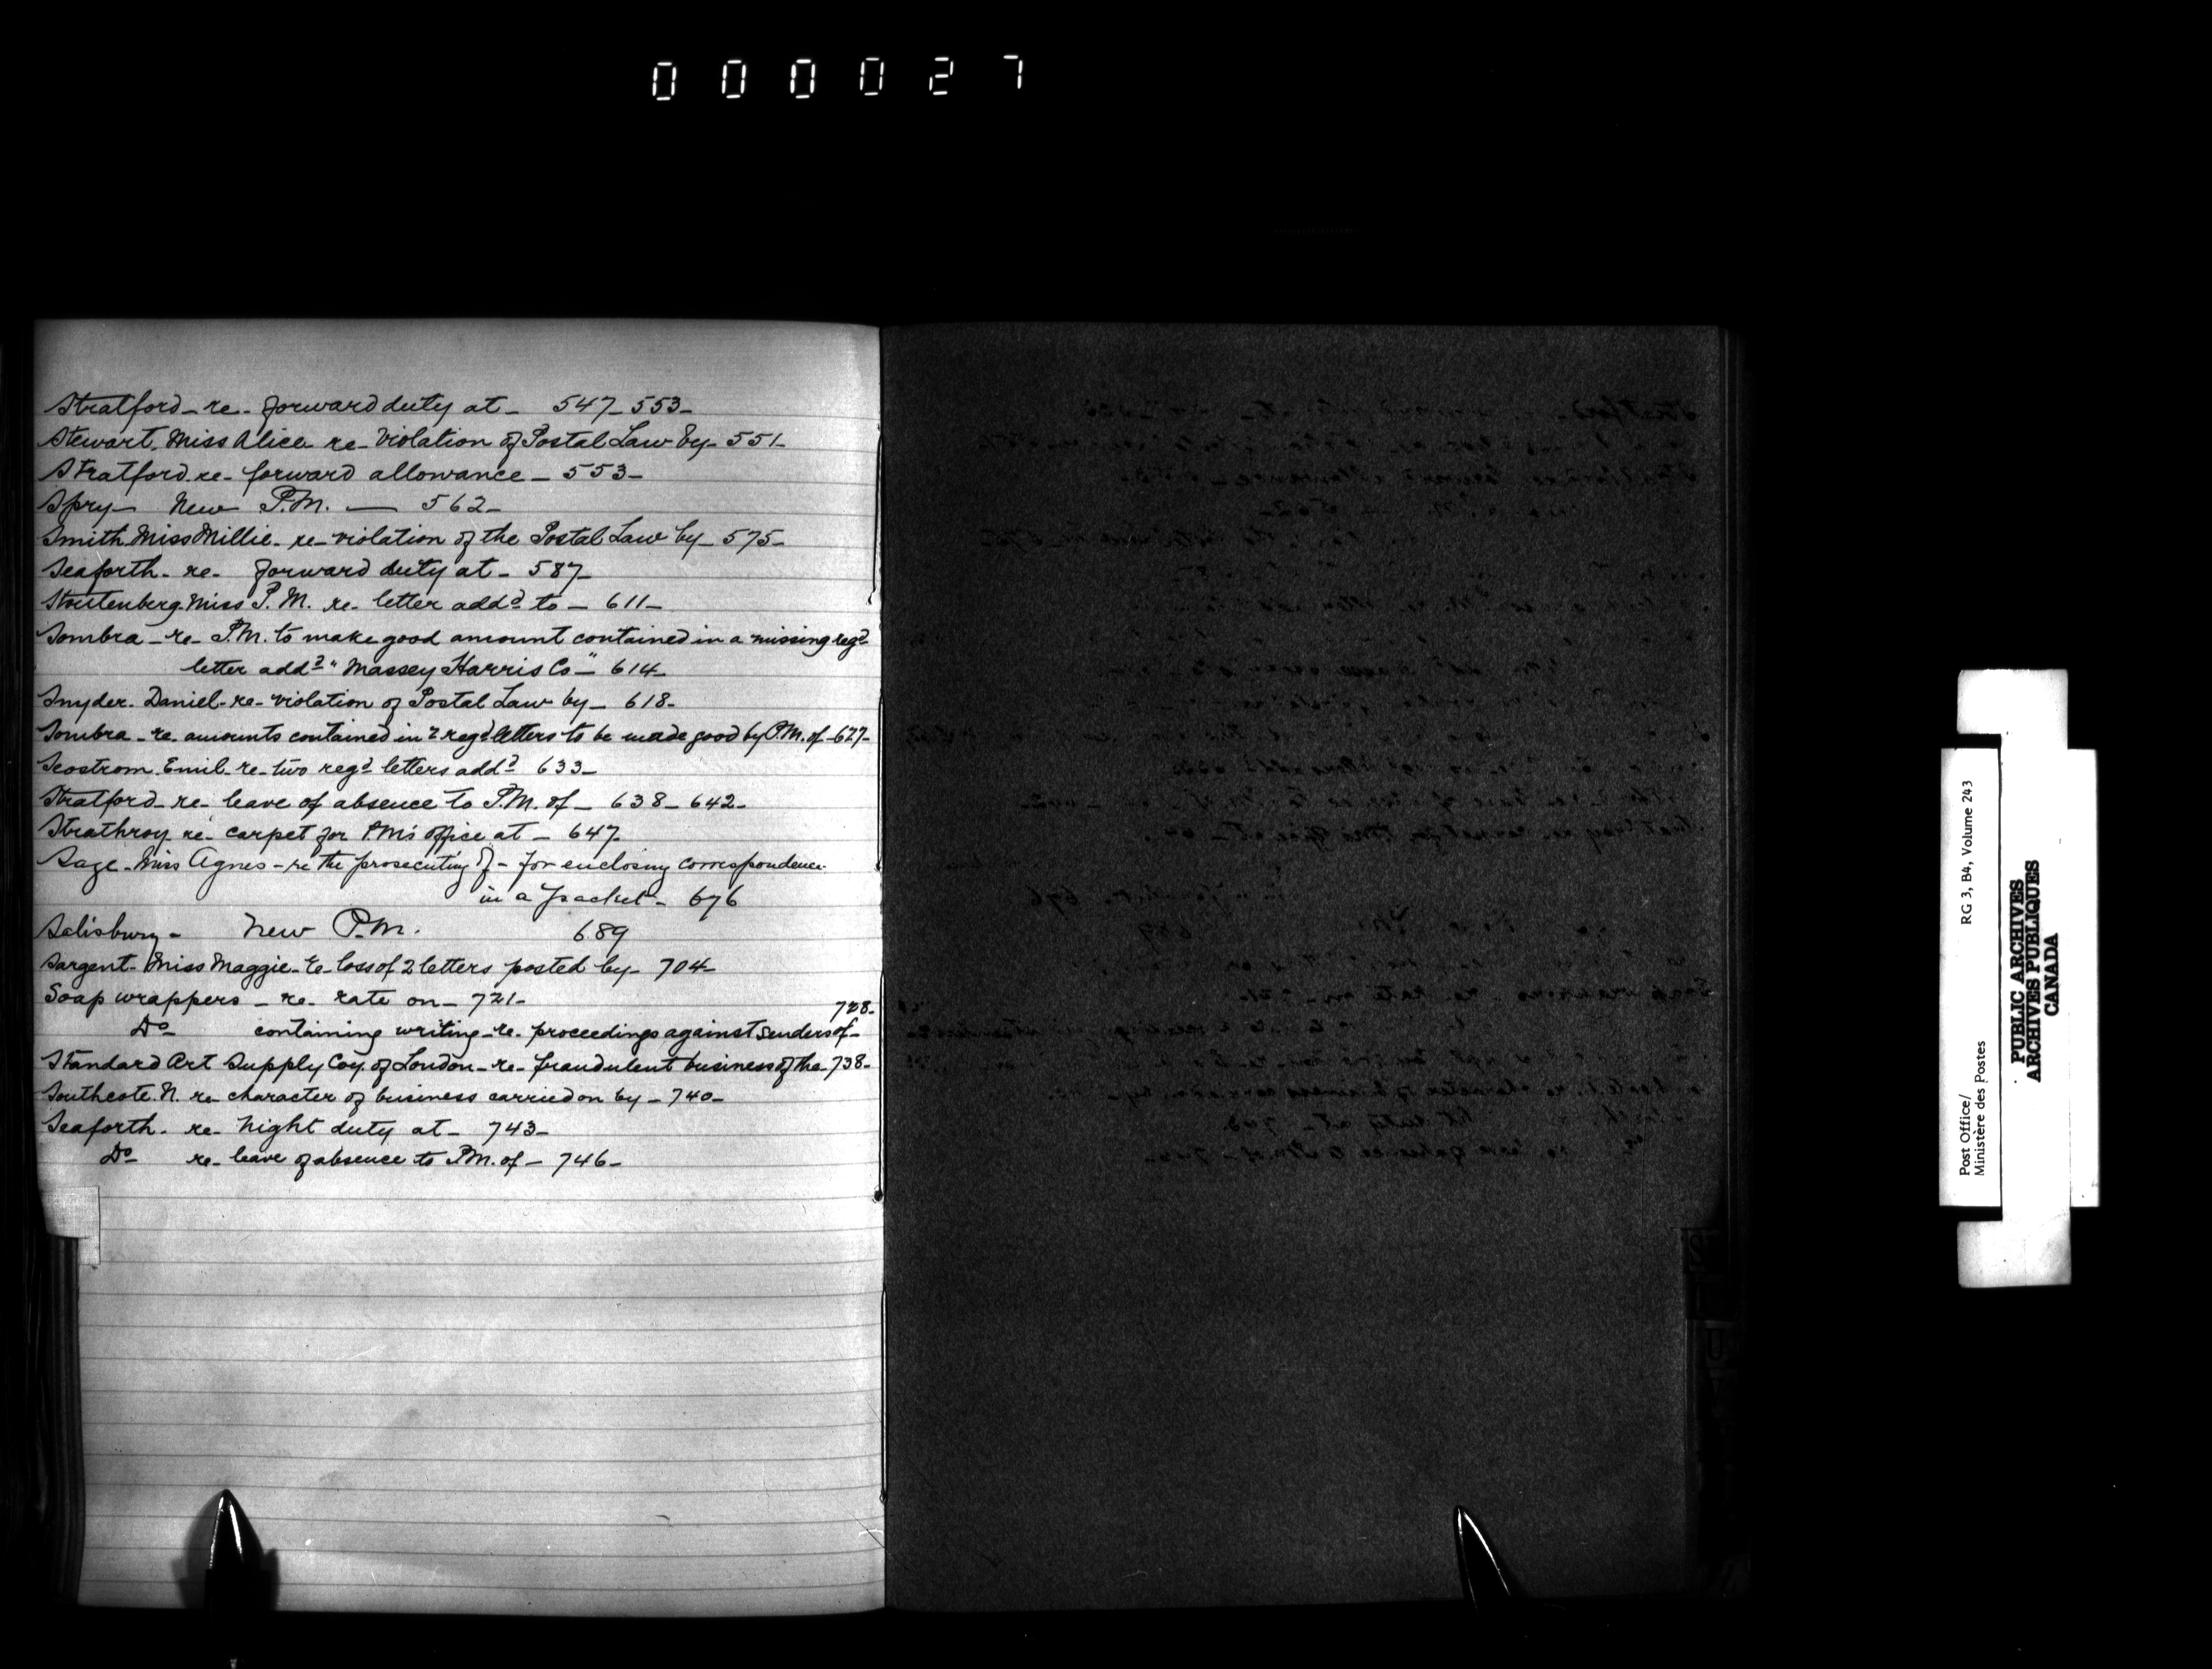 000027
Stratford - re - forward duty at - 547 - 553 -
Stewart. Miss Alice re - Violation of Postal Law by - 551 -
Stratford. re - forward allowance - 553 -
Spry - New P.M. — 562 -
Smith. Miss Millie - re - violation of the Postal Law by - 575 -
Seaforth - re - forward duty at - 587 -
Stoutenberg. Miss P. M. re - letter addd to - 611 -
Sombra - re - P.M. to make good amount contained in a missing regd
letter addd "Massey Harris Co -" 614 -
Snyder. Daniel - re - violation of Postal Law by - 618 -
Sombra - re. amounts contained in 2 regd letters to be made good by P.M. of - 627 -
Seostrom. Emil - re - two regd letters addd 633 -
Stratford - re - leave of absence to P.M. of - 638 - 642 -
Strathroy re - carpet for PM's office at - 647 -
Sage - Miss Agnes - re the prosecuting of - for enclosing correspondence
in a packet - 676
Salisbury - New P.M. 689
Sargent - Miss Maggie - re - loss of 2 letters posted by - 704 -
Soap wrappers - re - rate on - 721 -
728 -
Do containing writing - re - proceedings against senders of -
Standard Art Supply Coy. of London - re - fraudulent business of the - 738 -
Southcote. N. re - character of business carried on by - 740 -
Seaforth - re - Night duty at - 743 -
Do re - leave of absence to P.M. of - 746 -
Post Office/ RG 3, B4, Volume 243
Ministère des Postes
PUBLIC ARCHIVES
ARCHIVES PUBLIQUES
CANADA